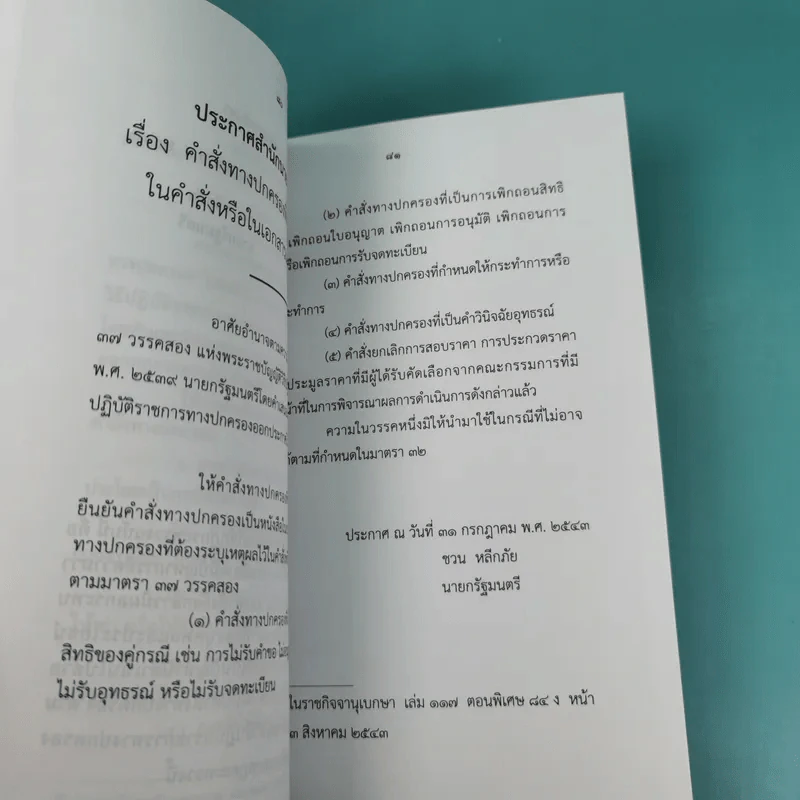 ๘๐
ประกาศสำนักนา
เรื่อง คำสั่งทางปกครอง
ในคำสั่งหรือในเอกสาร
อาศัยอำนาจตาม
๓๗ วรรคสอง แห่งพระราชบัญญัติ
พ.ศ. ๒๕๓๙ นายกรัฐมนตรีโดย
ปฏิบัติราชการทางปกครองออกประกา
ให้คำสั่งทางปกครอง
ยืนยันคำสั่งทางปกครองเป็นหนังสือ
ทางปกครองที่ต้องระบุเหตุผลไว้ในคำสั่ง
ตามมาตรา ๓๗ วรรคสอง
(๑) คำสั่งทางปกครอง
สิทธิของคู่กรณี เช่น การไม่รับคำขอ
ไม่รับอุทธรณ์ หรือไม่รับจดทะเบียน
๘๑
(๒) คำสั่งทางปกครองที่เป็นการเพิกถอนสิทธิ
เพิกถอนใบอนุญาต เพิกถอนการอนุมัติ เพิกถอนการ
รือเพิกถอนการรับจดทะเบียน
(๓) คำสั่งทางปกครองที่กำหนดให้กระทำการหรือ
ะทำการ
(๔) คำสั่งทางปกครองที่เป็นคำวินิจฉัยอุทธรณ์
(๕) คำสั่งยกเลิกการสอบราคา การประกวดราคา
ประมูลราคาที่มีผู้ได้รับคัดเลือกจากคณะกรรมการที่มี
น้าที่ในการพิจารณาผลการดำเนินการดังกล่าวแล้ว
ความในวรรคหนึ่งมิให้นำมาใช้ในกรณีที่ไม่อาจ
ด้ตามที่กำหนดในมาตรา ๓๒
ประกาศ ณ วันที่ ๓๑ กรกฎาคม พ.ศ. ๒๕๔๓
ชวน หลีกภัย
นายกรัฐมนตรี
ในราชกิจจานุเบกษา เล่ม ๑๑๗ ตอนพิเศษ ๘๔ ง หน้า
๓ สิงหาคม ๒๕๔๓